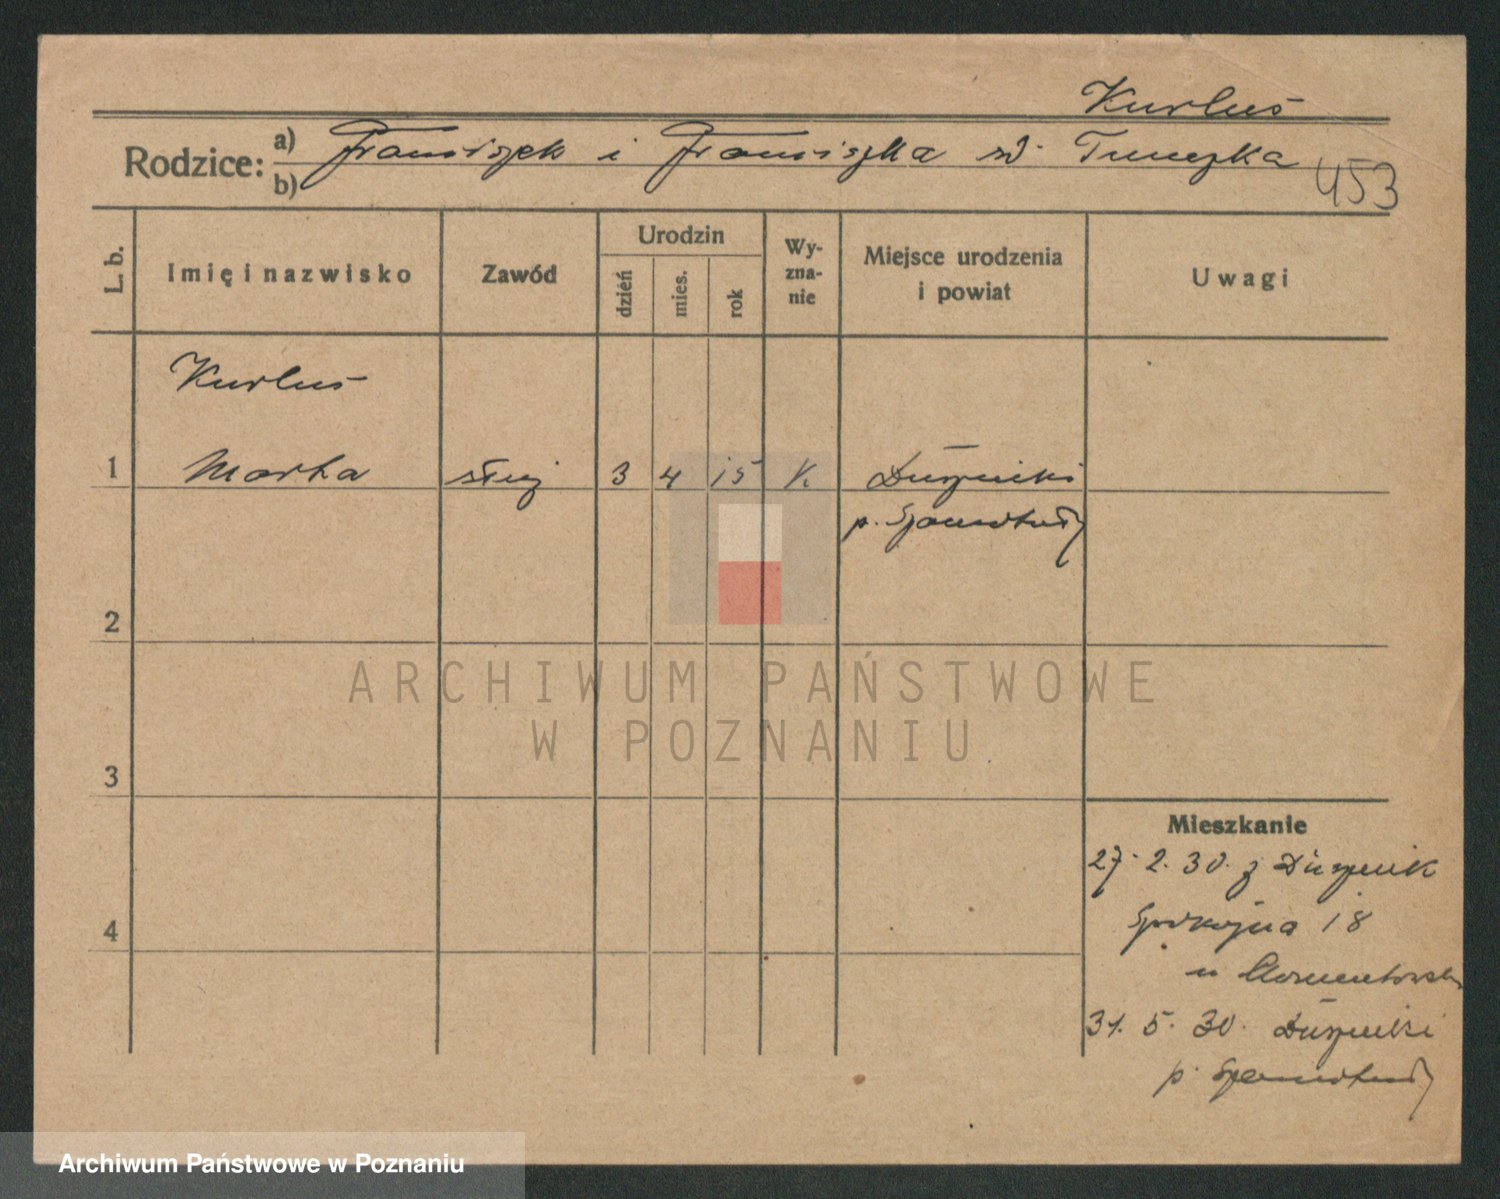 Kurluś
Rodzice: a) Franciszek i Franciszka zd.
b)
453
L. b.
Imię i nazwisko
Zawód
Urodzin
dzień
mies.
rok
Wy-
zna-
nie
Miejsce urodzenia
i powiat
Uwagi
Kurluś
1 Marta służ 3 4 15 K. Duszniki
p. Szamotuły
2
3
4
ARCHIWUM PAŃSTWOWE
W POZNANIU
Mieszkanie
27. 2. 30. z Dusznik
Spokojna 18
u
31. 5. 30. Duszniki
p. Szamotuły
Archiwum Państwowe w Poznaniu